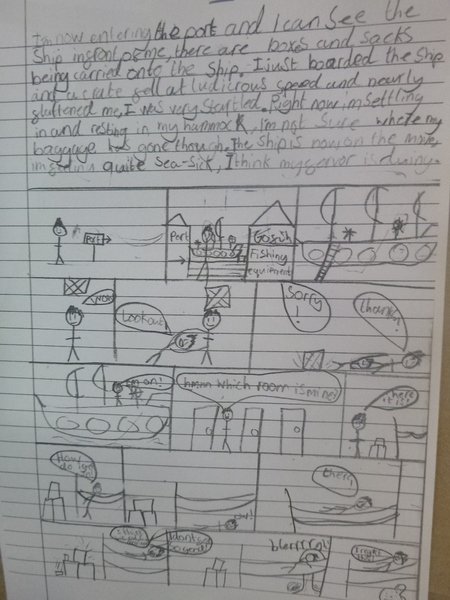 I'm now entering the port and I can see the
Ship infront of me, there are boxes and sacks
being carried onto the ship. I just boarded the ship
and a crate fell at ludicrous speed and nearly
flattened me, I was very startled. Right now im settling
in and resting in my hammock, I'm not sure where my
baggage has gone though. The ship is now on the move,
im feeling quite sea-sick, I think my fervor is
Port
Port
Fishing
equipment
Lookout
Sorry
!
Thankyou
I'm on!
hmmm which room is mine?
there
it is!
How
do I
ow!
there
I don't feel
so good!